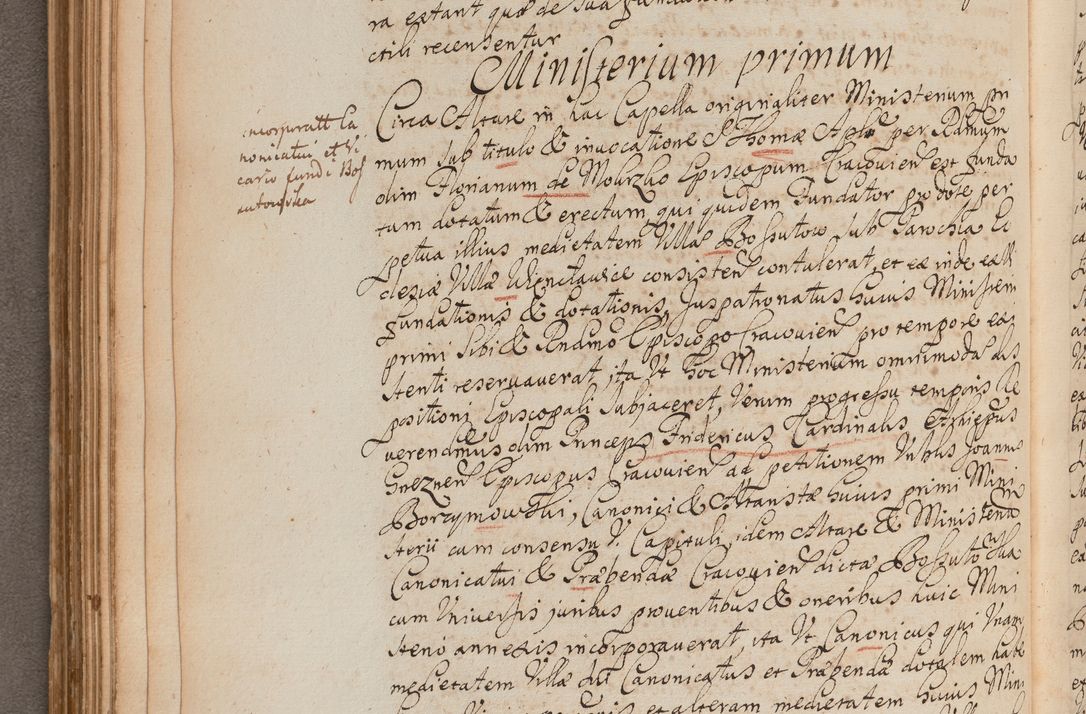 ra extant quæ de sua
ctili recensentur
Ministerium primum
Circa Altare in hac Capella originaliter Ministerium pri
mum sub titulo & invocatione S Thomæ Apli per Rdmum
olim Florianum de Mokrzko Episcopum Cracovien est funda
tum dotatum & erectum, qui quidem Fundator pro dote per
petua illius medietatem Villæ Bossutow sub Parochia Ec
clesiæ Villæ Wienclawice consisten contulerat, et ex inde
fundationis & dotationis, Juspatronatus huius Ministerii
primi sibi & Rndmo Episcopo Cracovien pro tempore exi
stenti reservaverat, ita Ut hoc Ministerium omnimoda dis
positioni Episcopali subjaceret, Verum progressu temporis Re
verendmus olim Princeps Fridericus Cardinalis Archiepus
Gneznen Episcopus Cracovien ad petitionem Nobilis Joannis
Borzymowski, Canonici & Altaristæ huius primi Mini
sterii cum consensu V. Capituli, idem Altare & Ministeriu
Canonicatui & Præbendæ Cracovien dicta Bossutowska
cum Universis juribus proventibus & oneribus huic Mini
sterio annexis incorporaverat, ita Ut Canonicus qui Unam
medietatem Villæ dict Canonicatus et Præbendæ dotalem habet
et alteram medietatem huius Mini
incorporatt Ca
nonicatui et Vi
cario fundi Bos
sutowska